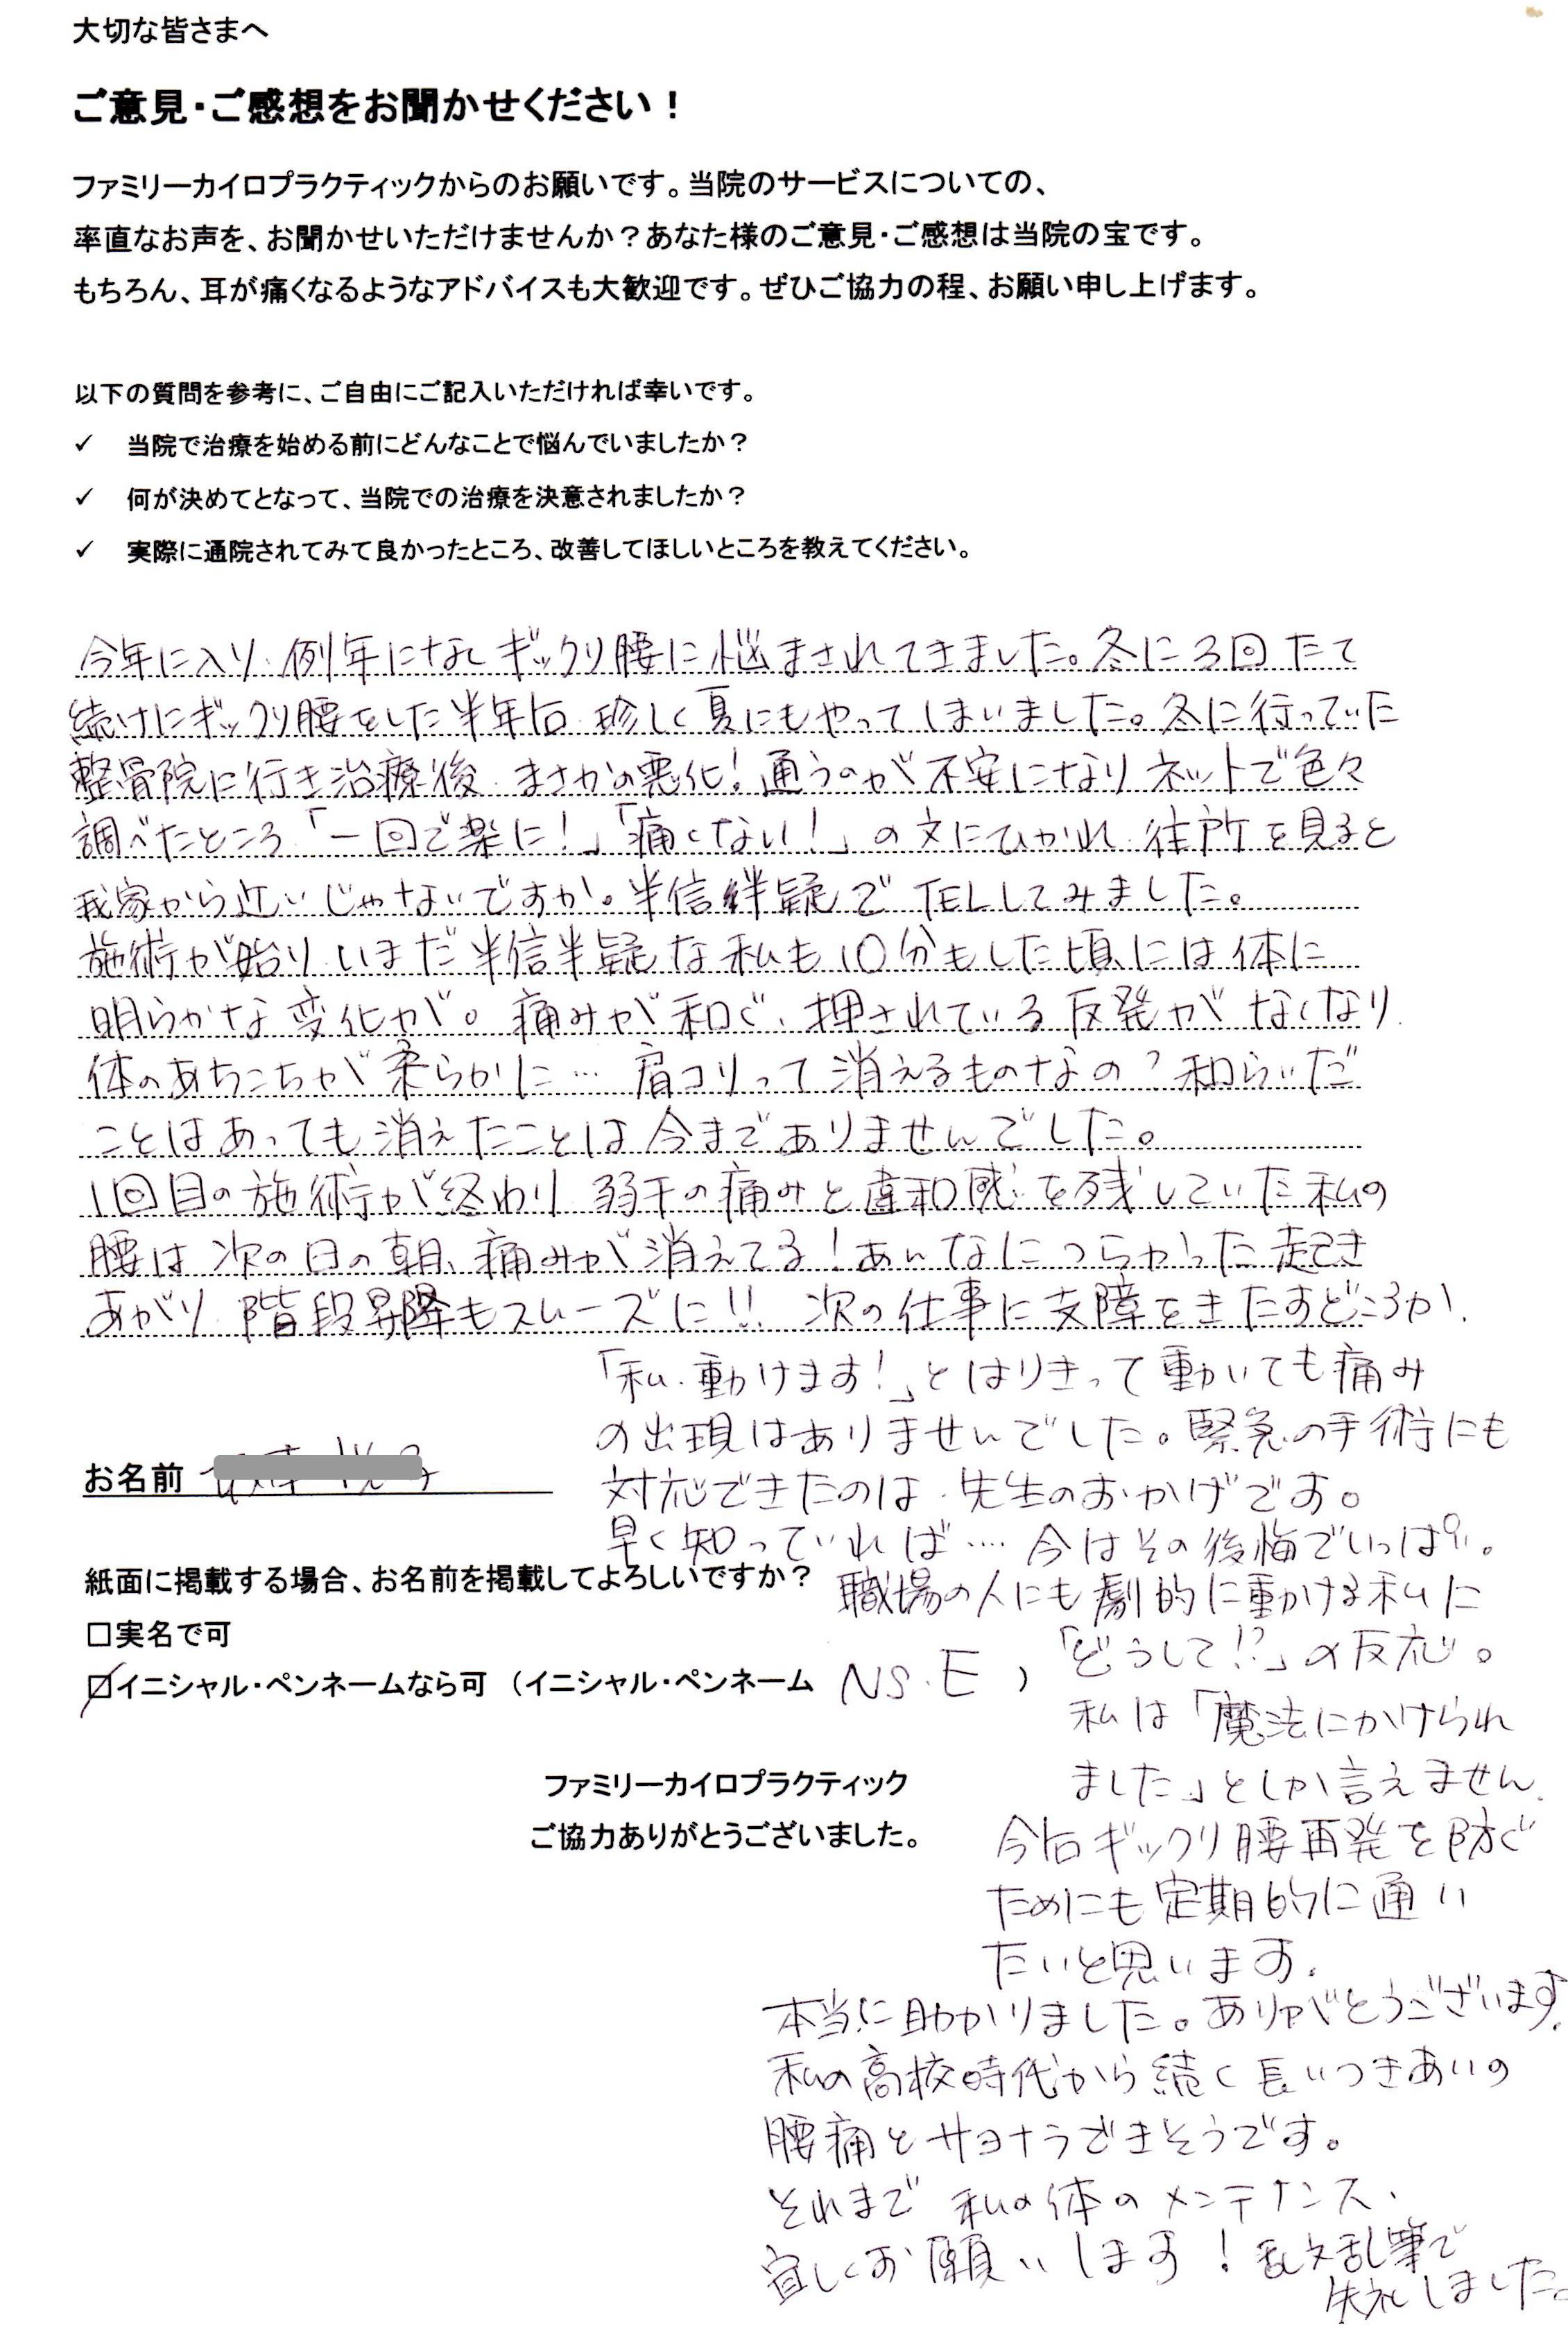 大切な皆さまへ
ご意見・ご感想をお聞かせください！
ファミリーカイロプラクティックからのお願いです。当院のサービスについての、
率直なお声を、お聞かせいただけませんか？あなた様のご意見・ご感想は当院の宝です。
もちろん、耳が痛くなるようなアドバイスも大歓迎です。ぜひご協力の程、お願い申し上げます。
以下の質問を参考に、ご自由にご記入いただければ幸いです。
✓ 当院で治療を始める前にどんなことで悩んでいましたか？
✓ 何が決めてとなって、当院での治療を決意されましたか？
✓ 実際に通院されてみて良かったところ、改善してほしいところを教えてください。
今年に入り、例年になしギックリ腰に悩まされてきました。冬に3回たて
続けにギックリ腰をした半年后、珍しく夏にもやってしまいました。冬に行っていた
整骨院に行き治療後、まさかの悪化！通うのが不安になりネットで色々
調べたところ「一回で楽に！」「痛くない！」の文にひかれ、住所を見ると
我家から近いじゃないですか。半信半疑でTELしてみました。
施術が始り、いまだ半信半疑な私も10分もした頃には体に
明らかな変化が。痛みが和ぐ、押されている反発がなくなり、
体のあちこちが柔らかに…肩コリって消えるものなの？和らいだ
ことはあっても消えたことは今までありませんでした。
1回目の施術が終わり、弱干の痛みと違和感を残していた私の
腰は次の日の朝、痛みが消えてる！あんなにつらかった起き
あがり、階段昇降もスムーズに!! 次の仕事に支障をきたすどころか、
「私、動けます！」とはりきって動いても痛み
の出現はありませんでした。緊急の手術にも
対応できたのは、先生のおかげです。
早く知っていれば…今はその後悔でいっぱい。
職場の人にも劇的に動ける私に
「どうして!?」の反応。
私は「魔法にかけられ
ました」としか言えません。
今后ギックリ腰再発を防ぐ
ためにも定期的に通い
たいと思います。
本当に助かりました。ありがとうございます。
私の高校時代から続く長いつきあいの
腰痛とサヨナラできそうです。
それまで私の体のメンテナンス、
宜しくお願いします！乱文乱筆で
失礼しました。
お名前
紙面に掲載する場合、お名前を掲載してよろしいですか？
□実名で可
☑イニシャル・ペンネームなら可（イニシャル・ペンネーム NS.E ）
ファミリーカイロプラクティック
ご協力ありがとうございました。